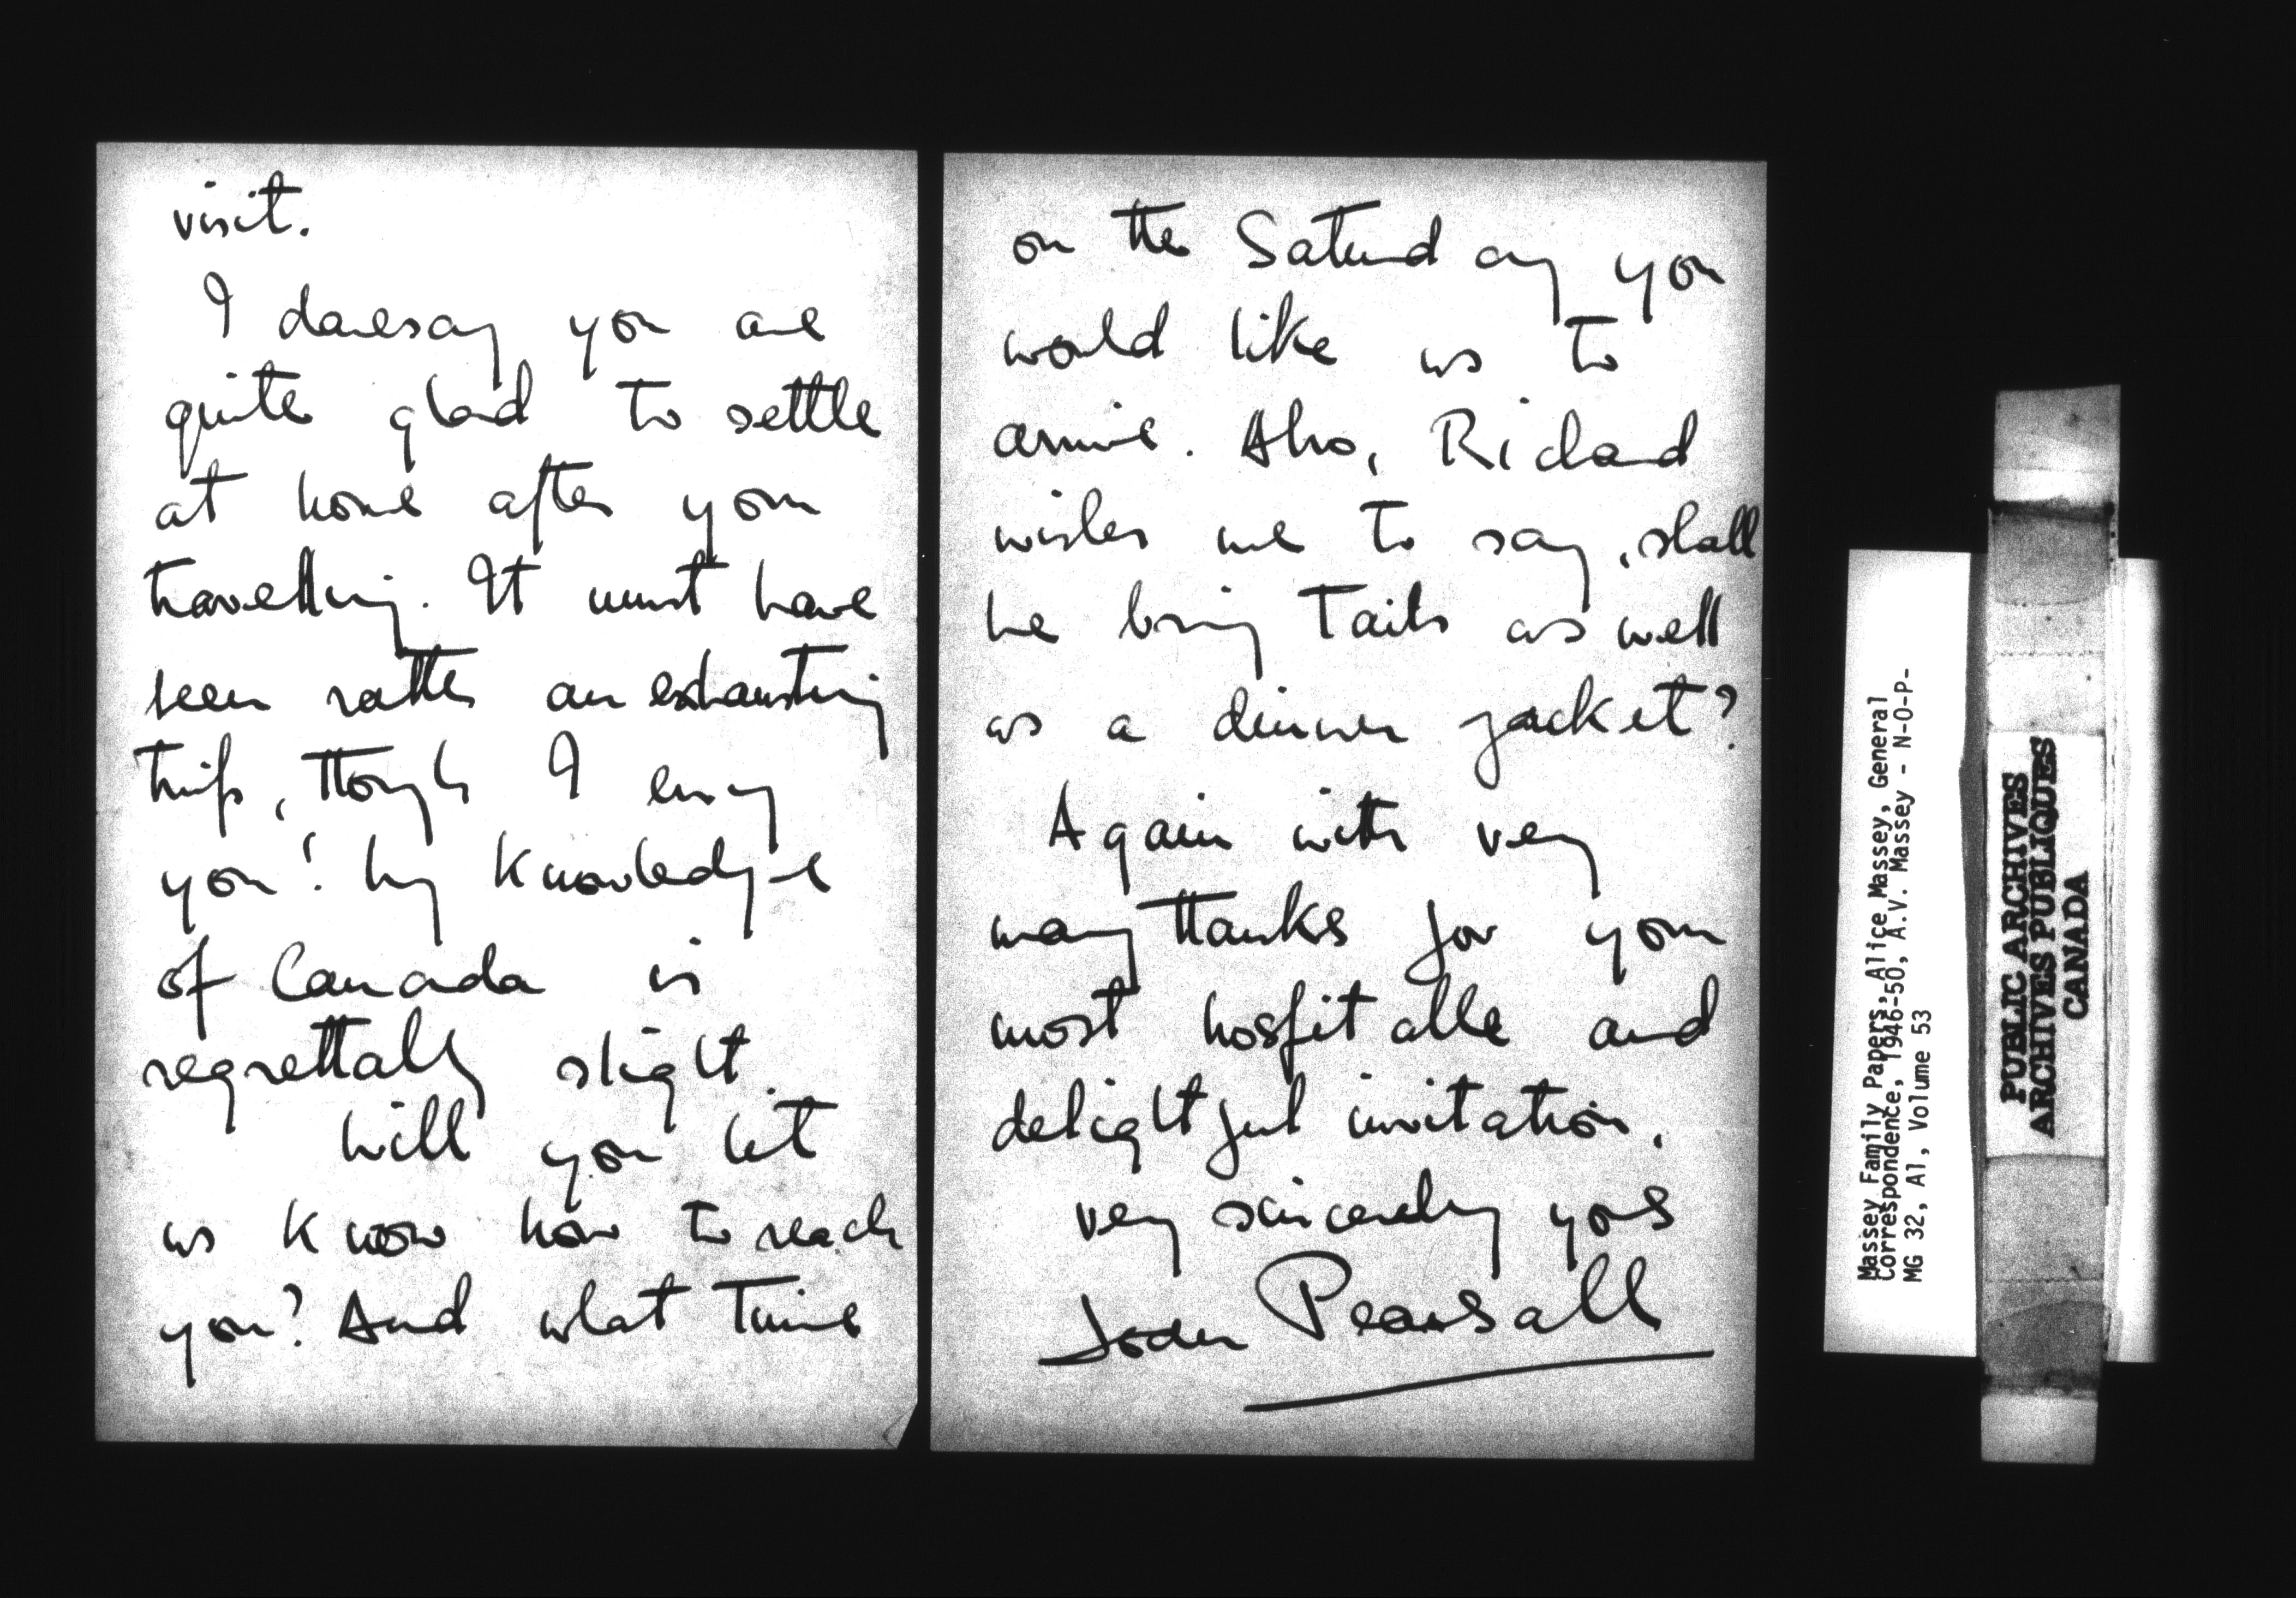 visit.
I daresay you are
quite glad to settle
at home after your
travelling. It must have
been rather an exhausting
trip, though I envy
you! My knowledge
of Canada is
regrettably slight.
Will you let
us know how to reach
you? And what time
on the Saturday you
would like us to
arrive. Also, Richard
wishes me to say, shall
he bring tails as well
as a dinner jacket?
Again with very
many thanks for your
most hospitable and
delightful invitation.
very sincerely yours
Joan Pearsall
Massey Family Papers, Alice Massey, General
Correspondence, 1946-50, A.V. Massey - N-O-P-
MG 32, A1, Volume 53
PUBLIC ARCHIVES
ARCHIVES PUBLIQUES
CANADA